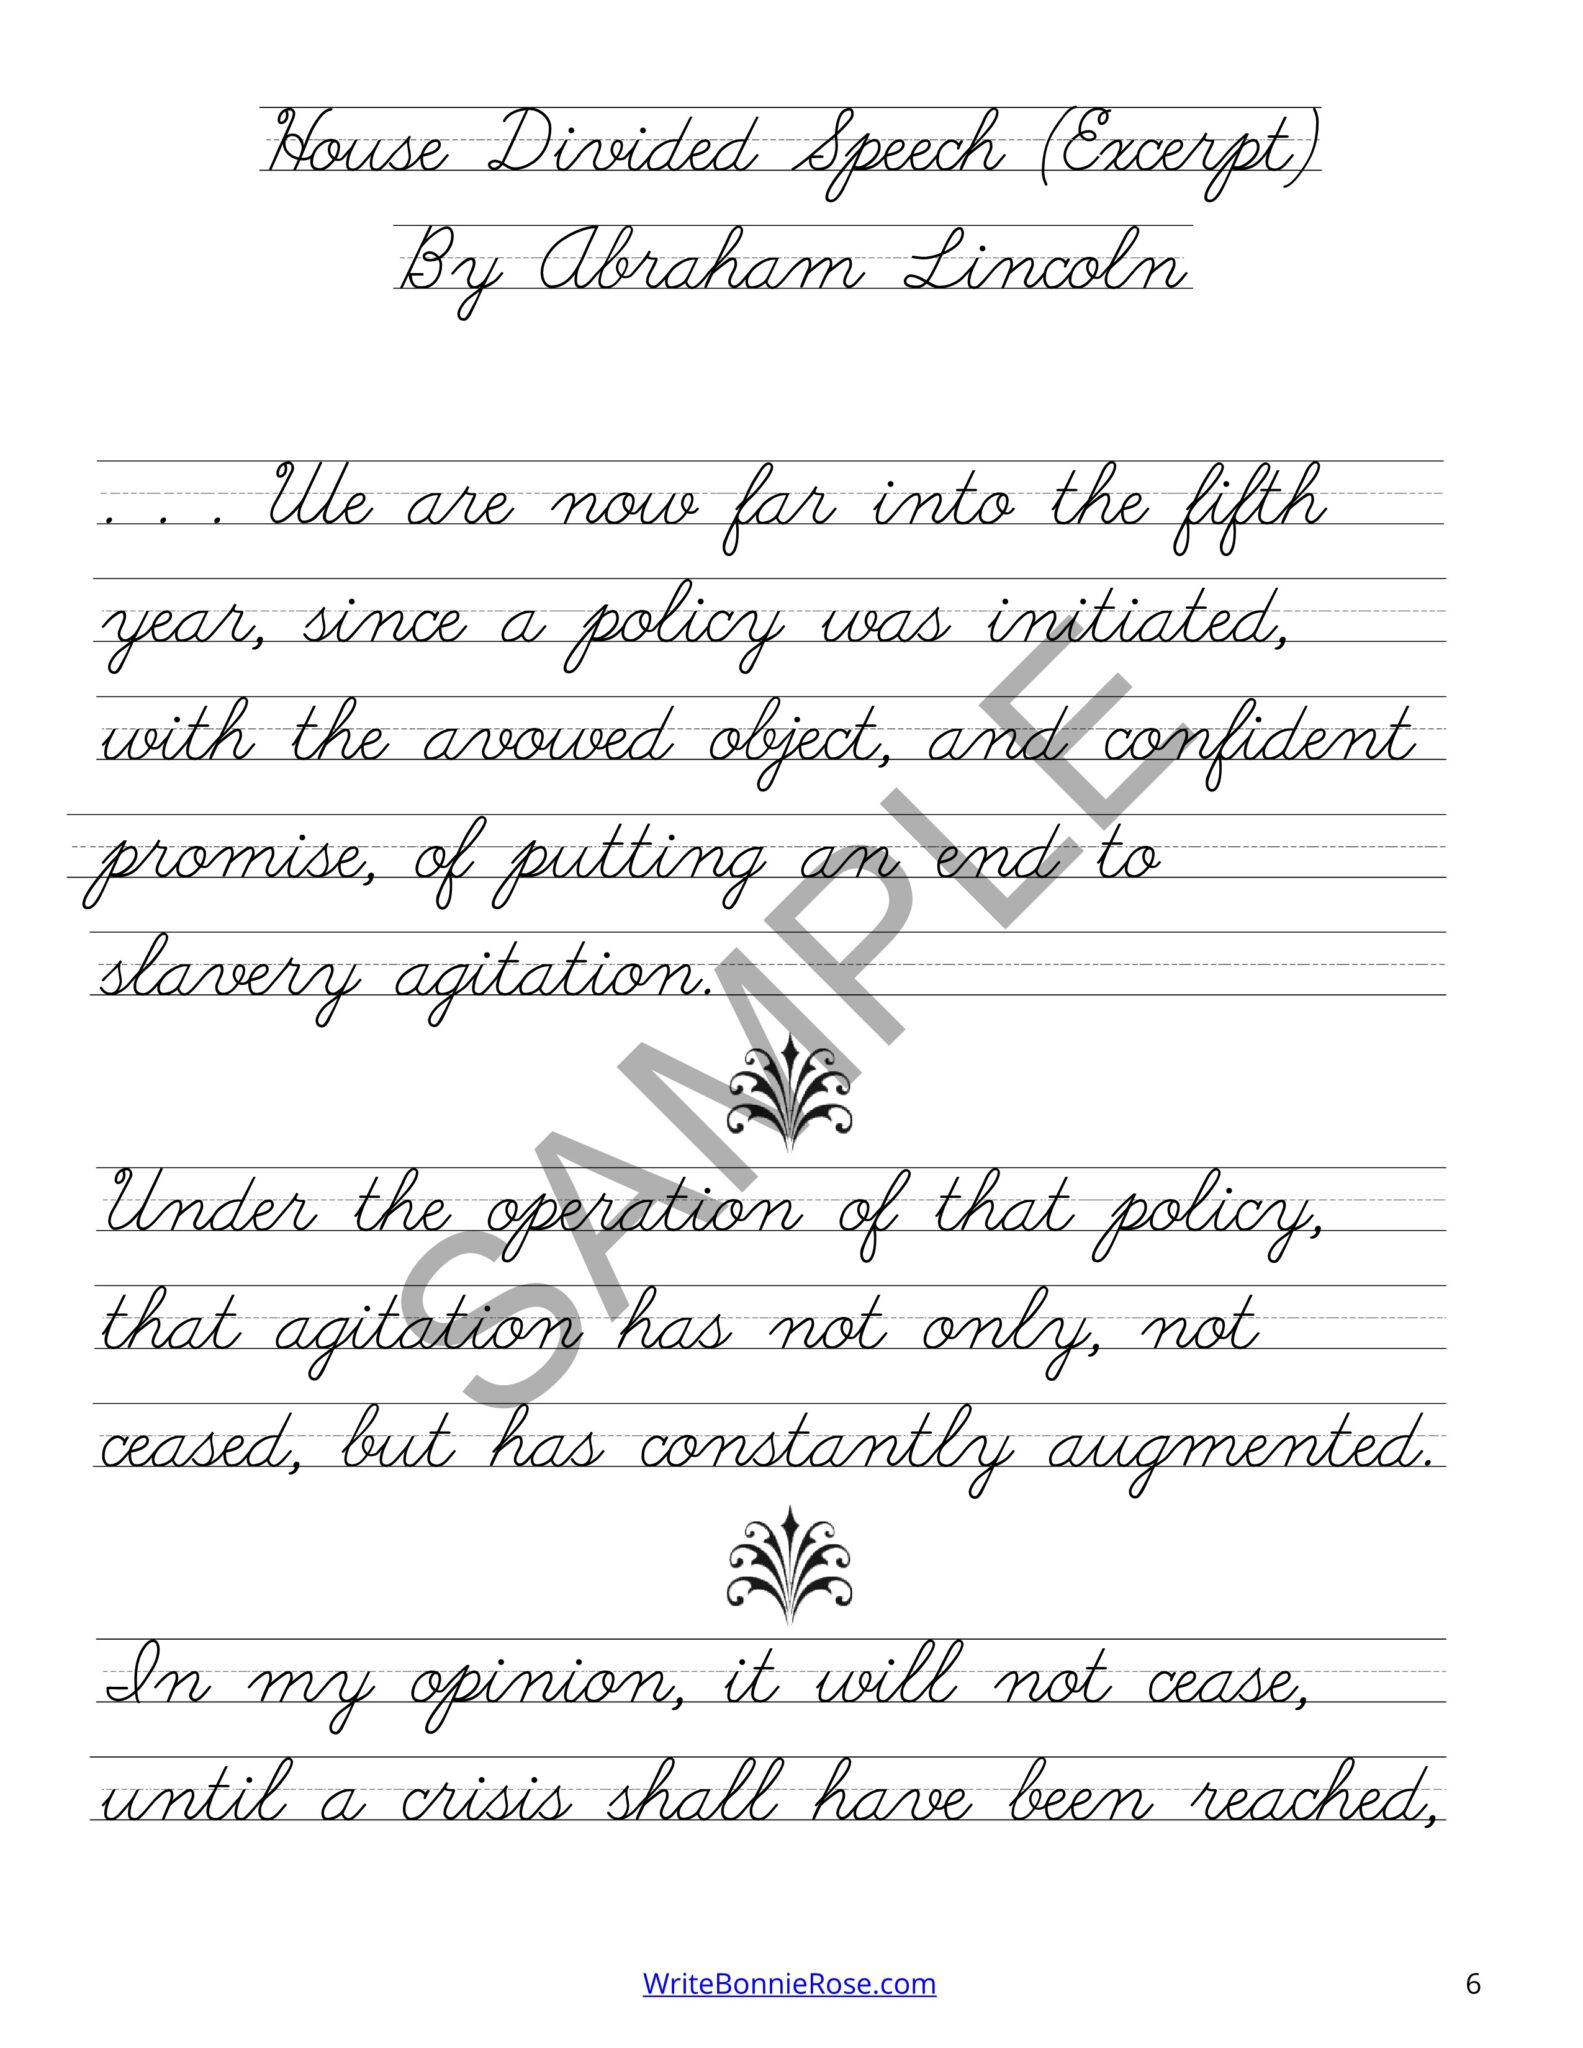 House Divided Speech (Excerpt)
By Abraham Lincoln
. . . We are now far into the fifth
year, since a policy was initiated,
with the avowed object, and confident
promise, of putting an end to
slavery agitation.
Under the operation of that policy,
that agitation has not only, not
ceased, but has constantly augmented.
In my opinion, it will not cease,
until a crisis shall have been reached,
SAMPLE
WriteBonnieRose.com
6